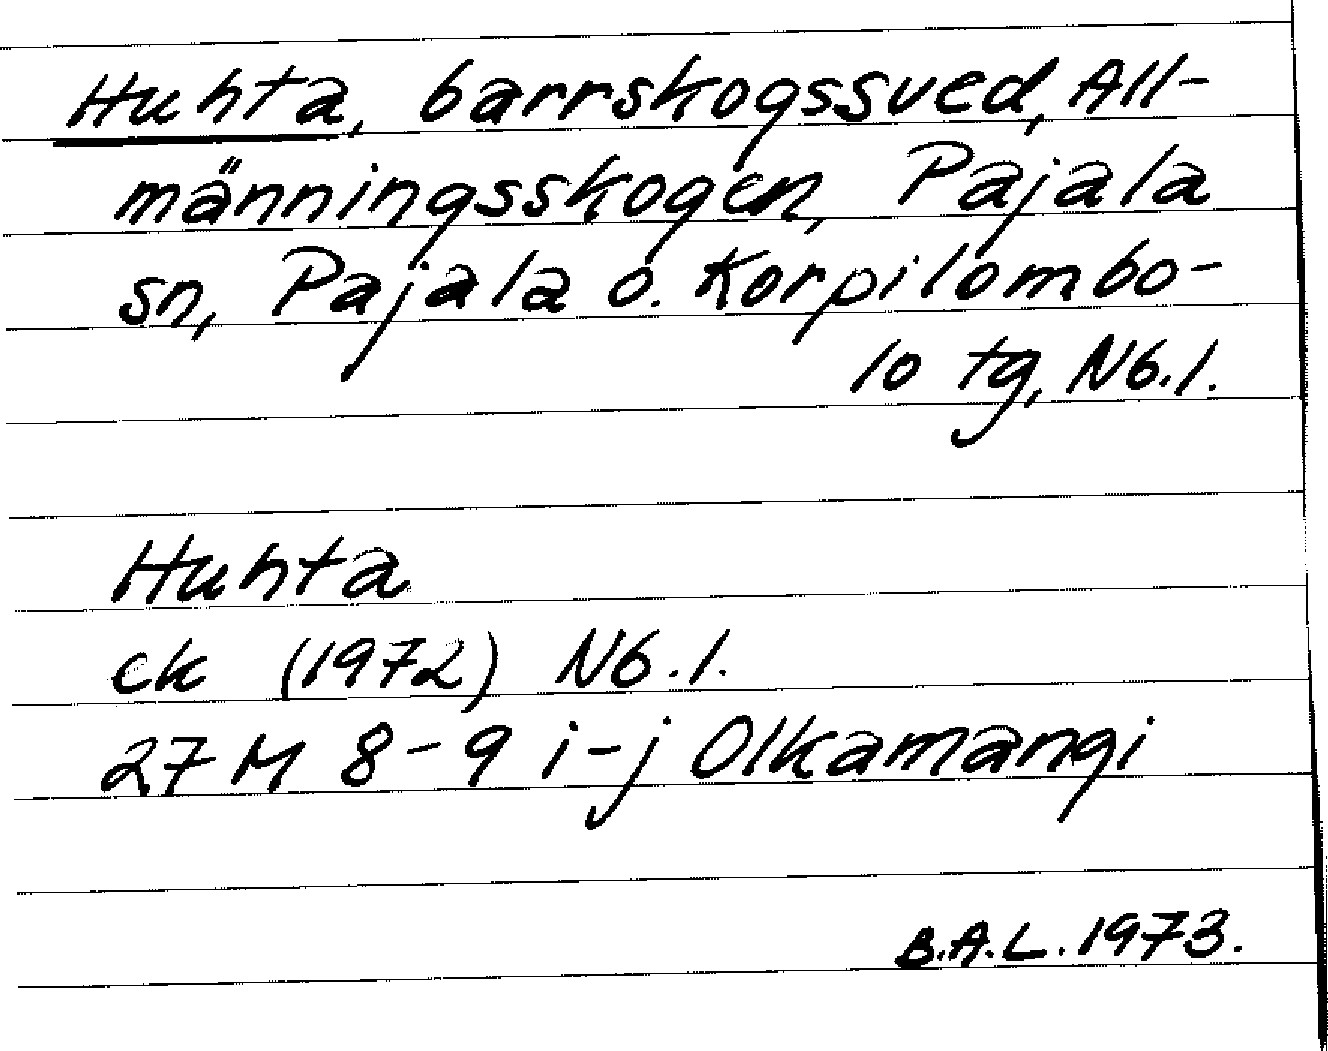 Huhta, barrskogssved, All-
männingsskogen, Pajala
sn, Pajala o. Korpilombo-
lo tg, Nb.l.
Huhta
ek (1972) Nb.l.
27 M 8-9 i-j Olkamangi
B.A.L. 1973.